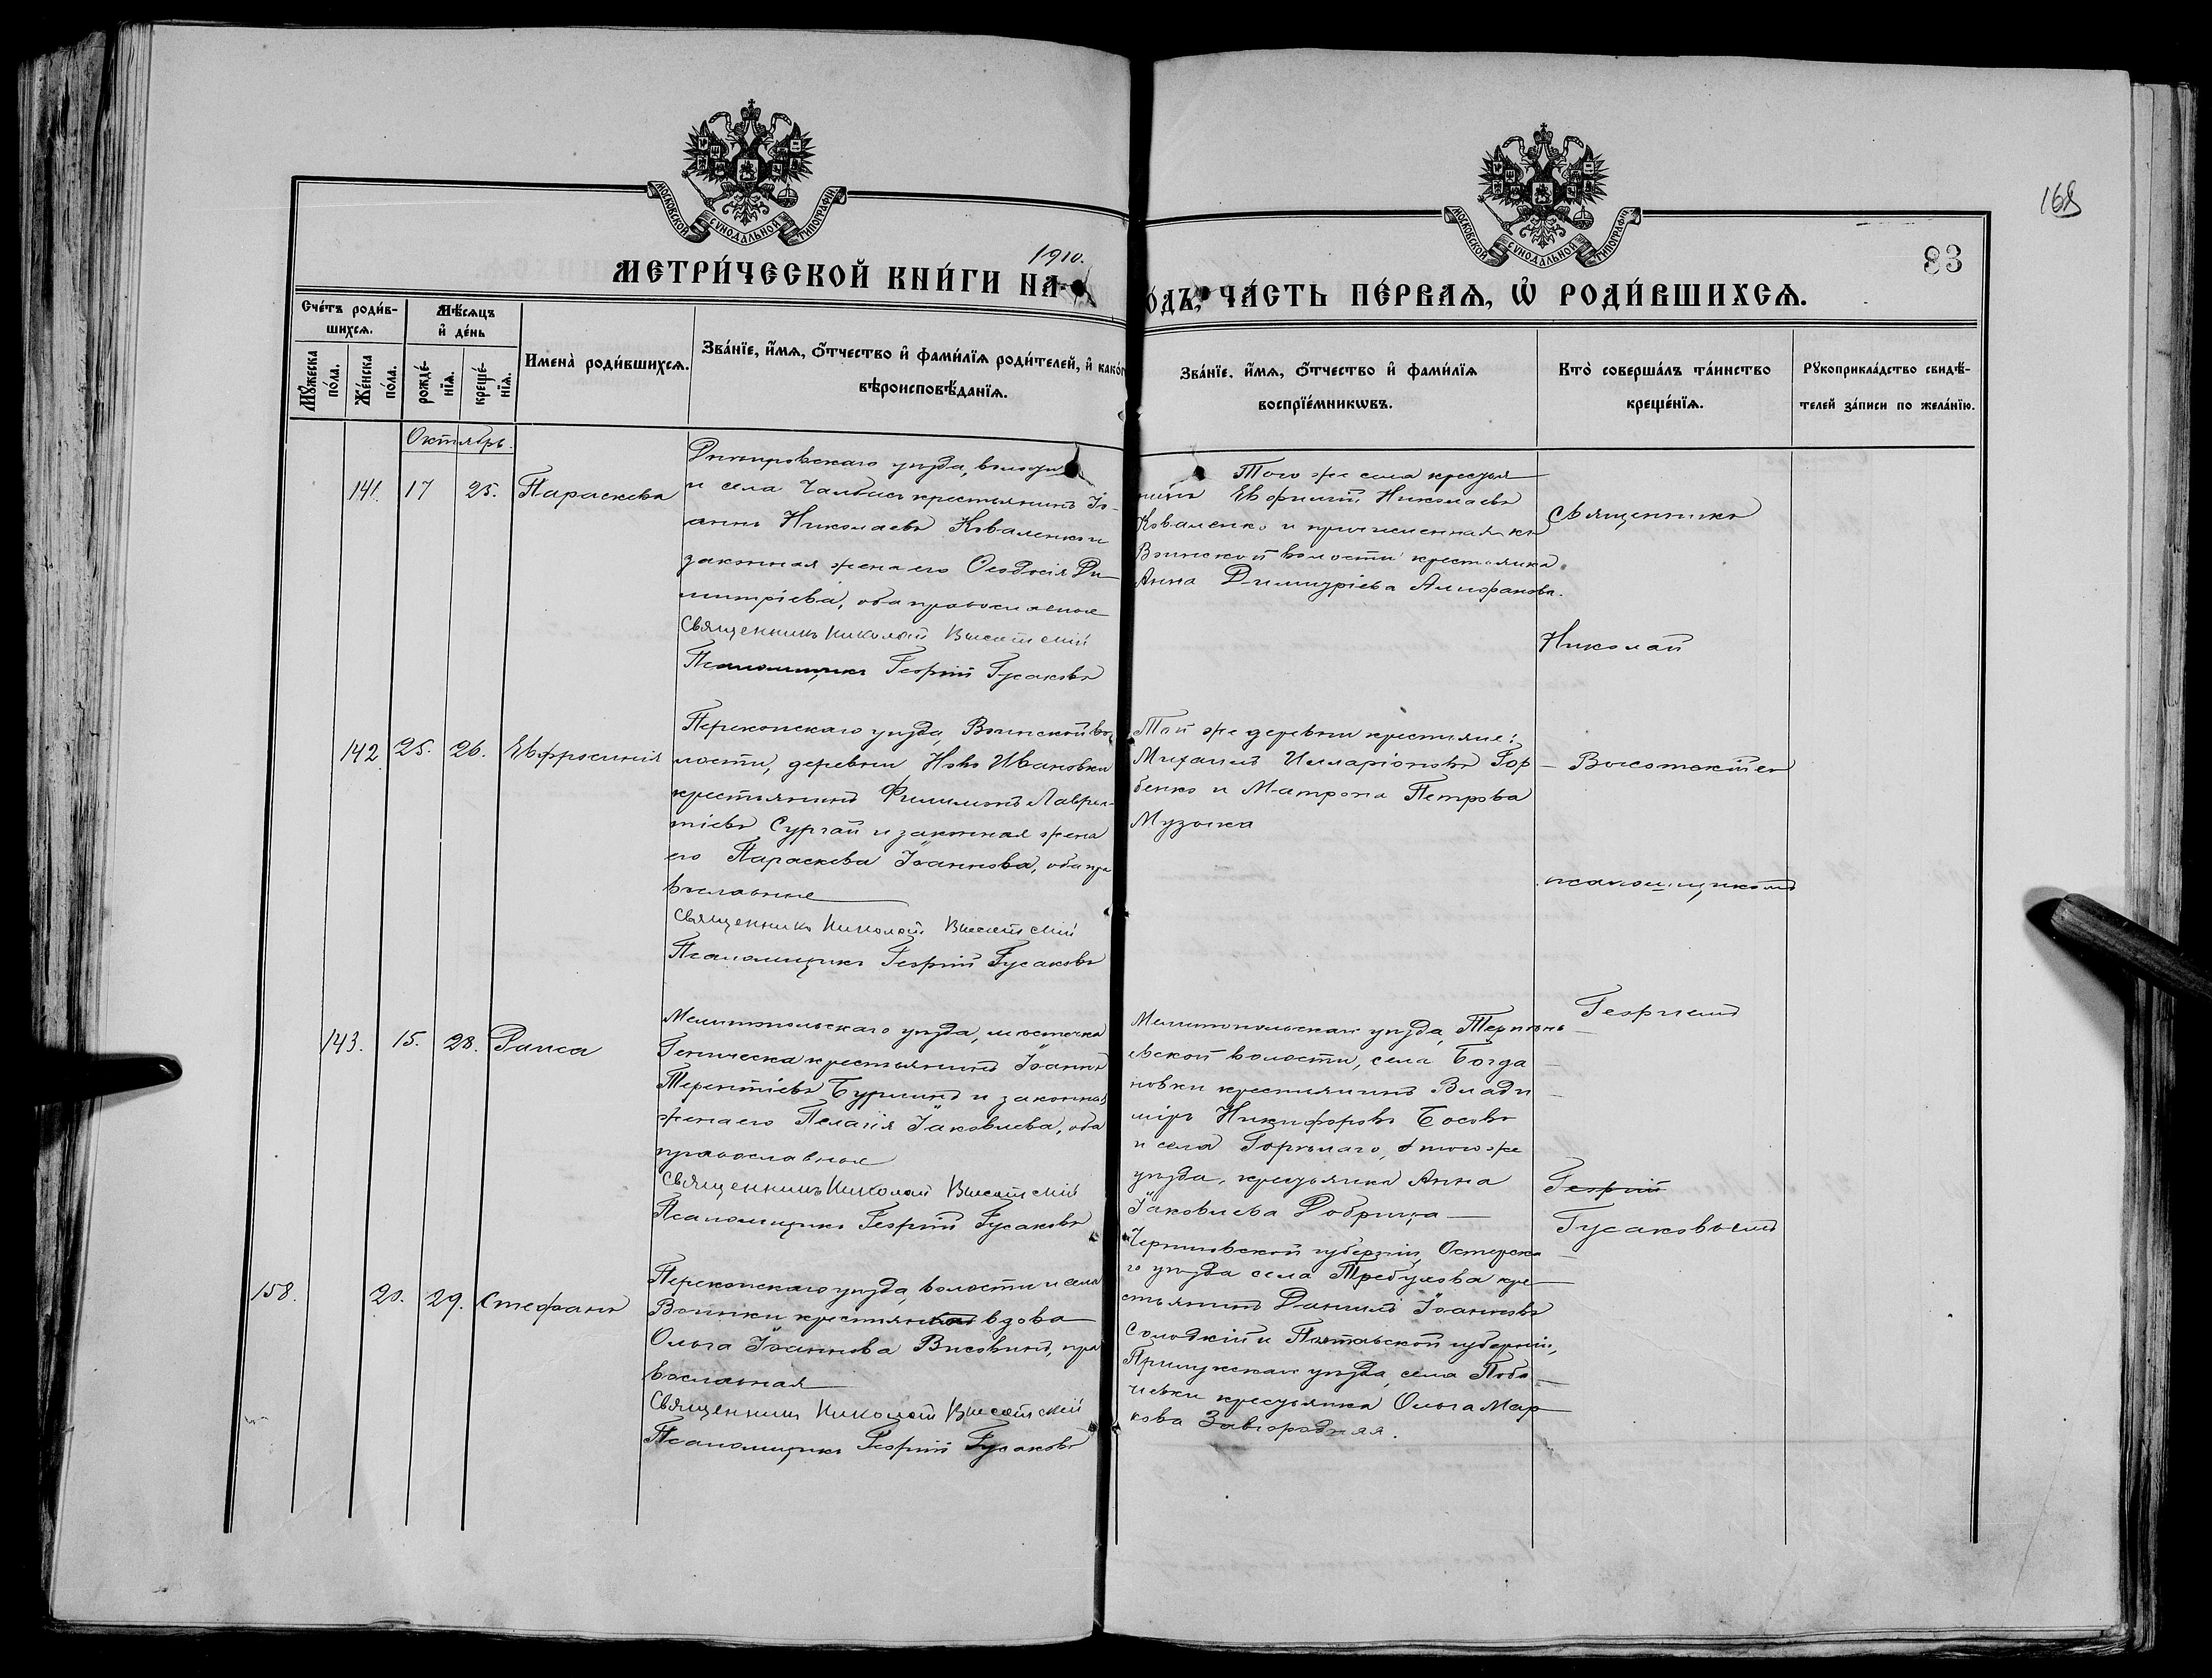 МОСКОВСКОЙ СѴНОДАЛЬНОЙ ТИПОГРАФІИ
МОСКОВСКОЙ СѴНОДАЛЬНОЙ ТИПОГРАФІИ
168
83
1910.
МЕТРИ́ЧЕСКОЙ КНИ́ГИ НА
ОДЪ, ЧА́СТЬ ПЕ́РВАѦ, Ѡ҆ РОДИ́ВШИХСѦ.
Сче́тъ роди́в-
шихсѧ.
Мѣ́сѧцъ
и҆ де́нь
Мꙋ́жеска по́ла.
Же́нска по́ла.
рожде́-нїѧ.
креще́-нїѧ.
Имена̀ роди́вшихсѧ.
Зва́нїе, и҆́мѧ, ѻ҆́тчество и҆ фами́лїѧ роди́телей, и҆ како́г
вѣроисповѣ́данїѧ.
Зва́нїе, и҆́мѧ, ѻ҆́тчество и҆ фами́лїѧ
воспрїе́мникѡвъ.
Кто̀ соверша́лъ та́инство
креще́нїѧ.
Рꙋкоприкла́дство свидѣ́-
телей за́писи по жела́нїю.
Октябрь.
141. 17 25. Параскева
Днѣпровскаго уѣзда, волости
и села Чалбасъ крестьянинъ Іо-
аннъ Николаевъ Коваленко и
законная жена его Ѳеодосія Ди-
митріева, оба православные
Священникъ Николай Высотскій
Псаломщикъ Георгій Гусаковъ
Того же села крестья
нинъ Евфимій Николаевъ
Коваленко и причисленная къ
Воинской волости крестьянка
Анна Димитріева Алифанова.
142. 25. 26. Евфросинія
Перекопскаго уѣзда, Воинской во-
лости, деревни Ново Ивановки
крестьянинъ Филимонъ Лаврен-
тіевъ Сургай и законная жена
его Параскева Іоаннова, оба пра
вославные
Священникъ Николай Высотскій
Псаломщикъ Георгій Гусаковъ
Той же деревни крестьяне:
Михаилъ Илларіоновъ Гор-
бенко и Матрона Петрова
Музыка
143. 15. 28. Раиса
Мелитопольскаго уѣзда, мѣстечка
Геническа крестьянинъ Іоаннъ
Терентіевъ Бурлинъ и законная
жена его Пелагія Іаковлева, оба
православные
Священникъ Николай Высотскій
Псаломщикъ Георгій Гусаковъ
Мелитопольскаго уѣзда,
волости, села Богда
новки крестьянинъ Влади
міръ Никифоровъ Босовъ
и села Горѣлаго, того же
уѣзда, крестьянка Анна
Іаковлева Добрица
158. 20. 29. Стефанъ
Перекопскаго уѣзда, волости и села
Воинки крестьянская вдова
Ольга Іоаннова
вославная
Священникъ Николай Высотскій
Псаломщикъ Георгій Гусаковъ
Черниговской губерніи, Остерска
го уѣзда села Требухова кре-
стьянинъ Даніилъ Іоанновъ
Солодкій и Полтавской губерніи,
Прилукскаго уѣзда, села
крестьянка Ольга Мар
кова Завгородняя.
Священникъ
Николай
псаломщикомъ
Георгіемъ
Георгій
Гусаковымъ